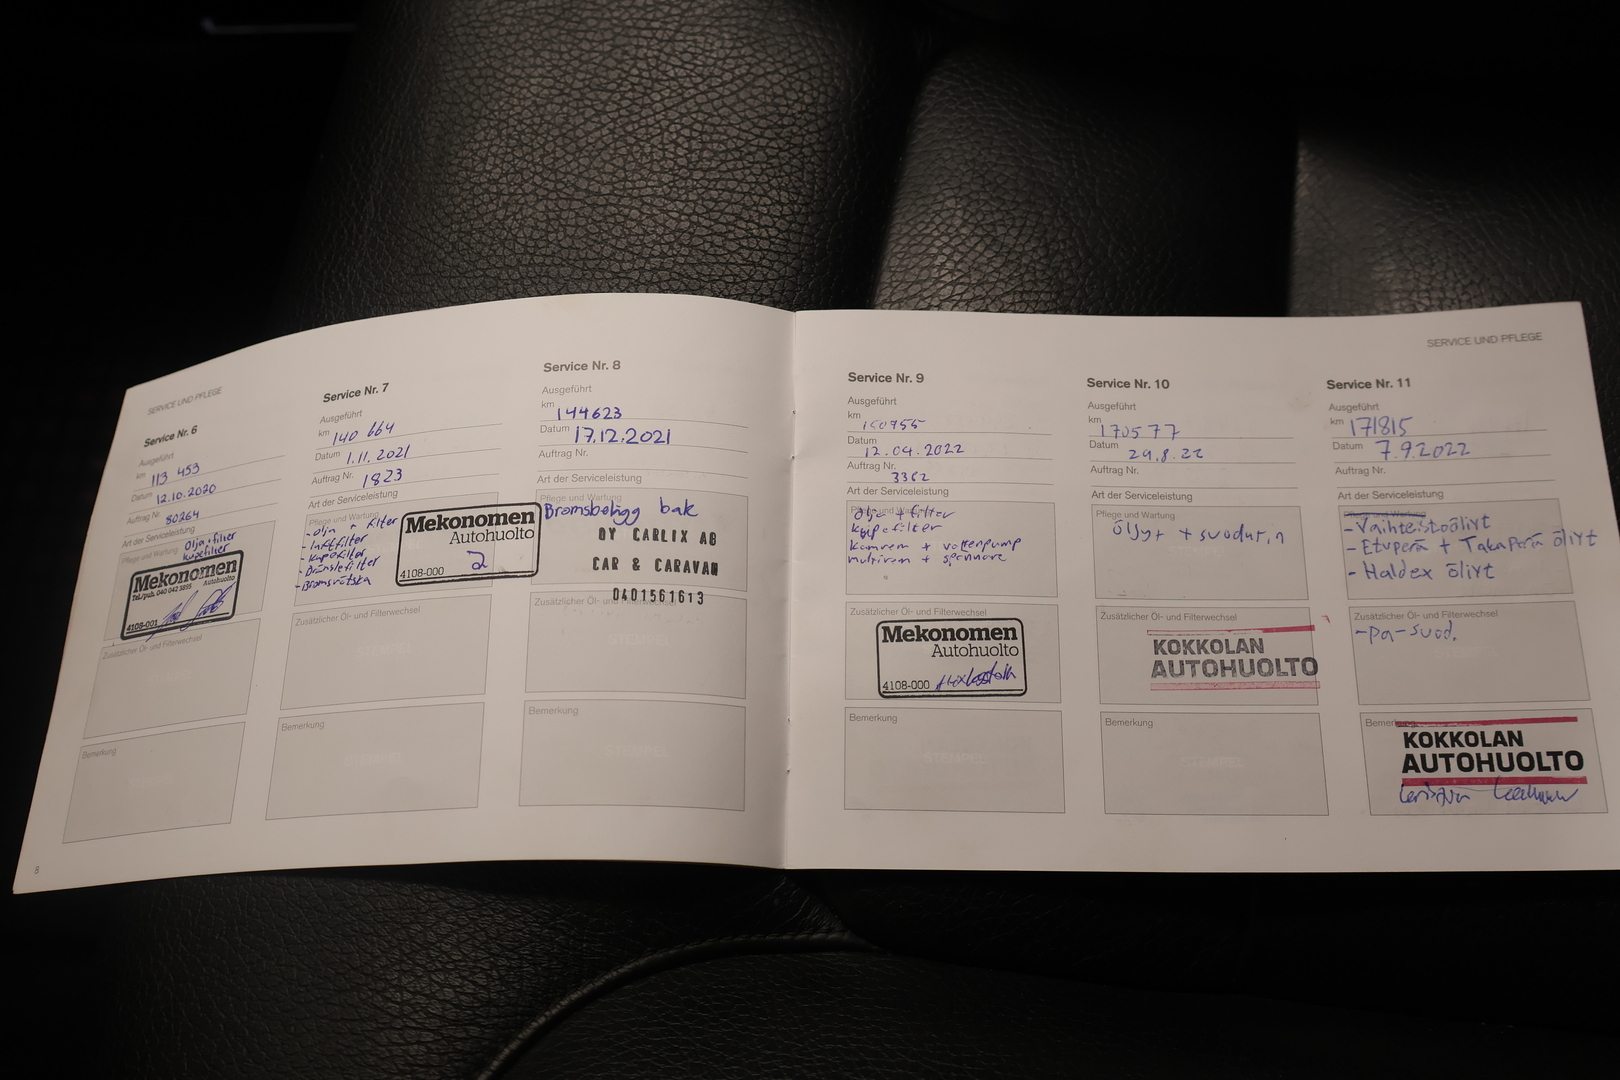 SERVICE UND PFLEGE
Service Nr. 6
Ausgeführt
km 113 453
Datum 12.10.2020
Auftrag Nr. 80264
Art der Serviceleistung
Pflege und Wartung
Olja+filter
kupefilter
Mekonomen
Autohuolto
Tel./puh. 040 042 3895
4108-001
Zusätzlicher Öl- und Filterwechsel
Bemerkung
8
Service Nr. 7
Ausgeführt
km 140 664
Datum 1.11.2021
Auftrag Nr. 1823
Art der Serviceleistung
Pflege und Wartung
- Olja + filter
- luftfilter
- Kupefilter
- Bränslefilter
- Bromsvätska
Mekonomen
Autohuolto
2
4108-000
Zusätzlicher Öl- und Filterwechsel
STEMPEL
Bemerkung
STEMPEL
Service Nr. 8
Ausgeführt
km 144623
Datum 17.12.2021
Auftrag Nr.
Art der Serviceleistung
Pflege und Wartung
Bromsbelägg bak
OY CARLIX AB
CAR & CARAVAN
0401561613
Zusätzlicher Öl- und Filterwechsel
STEMPEL
Bemerkung
STEMPEL
Service Nr. 9
Ausgeführt
km
Datum 12.04.2022
Auftrag Nr. 3362
Art der Serviceleistung
Pflege und Wartung
Olja + filter
kupefilter
kamrem + vattenpump
multirem + spännare
Zusätzlicher Öl- und Filterwechsel
Mekonomen
Autohuolto
4108-000
Bemerkung
STEMPEL
Service Nr. 10
Ausgeführt
km 170577
Datum 29.8.22
Auftrag Nr.
Art der Serviceleistung
Pflege und Wartung
Öljyt +
Zusätzlicher Öl- und Filterwechsel
KOKKOLAN
AUTOHUOLTO
Bemerkung
STEMPEL
SERVICE UND PFLEGE
Service Nr. 11
Ausgeführt
km 171815
Datum 7.9.2022
Auftrag Nr.
Art der Serviceleistung
Pflege und Wartung
- Vaihteistoölivt
- Etuperä + Takaperä ölivt
- Haldex ölivt
Zusätzlicher Öl- und Filterwechsel
-pa-suod.
STEMPEL
Bemerkung
KOKKOLAN
AUTOHUOLTO